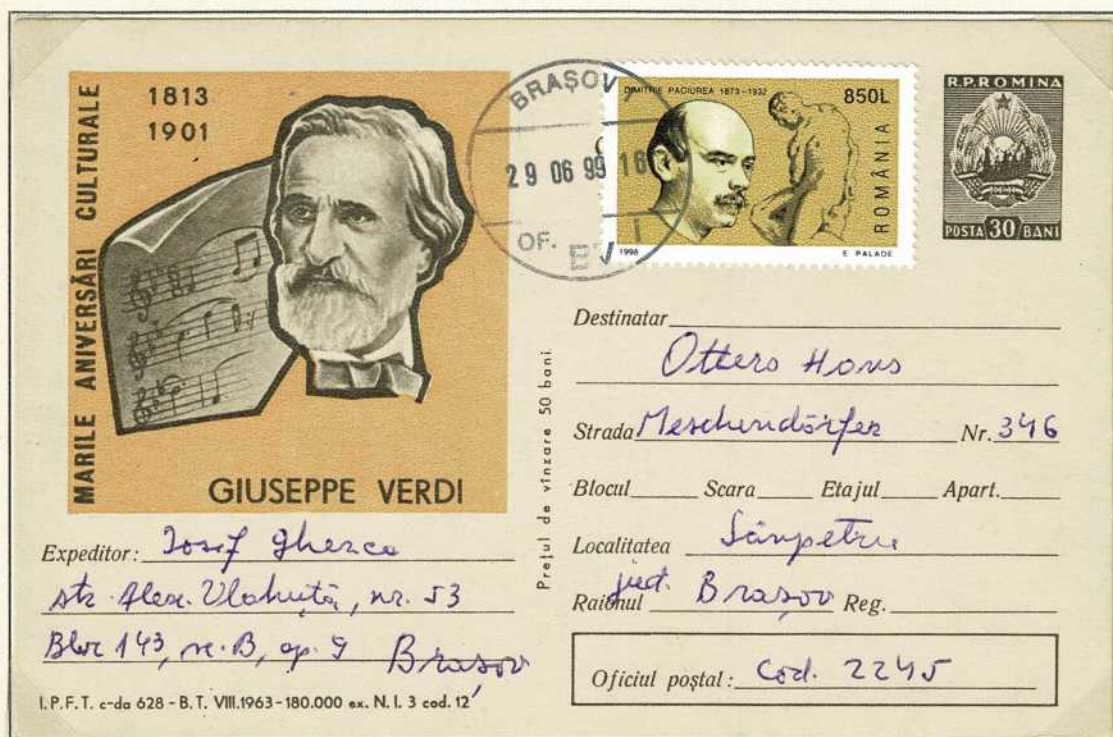 MARILE ANIVERSĂRI CULTURALE
1813
1901
GIUSEPPE VERDI
BRAȘOV 1
29 06 99 16
OF.
DIMITRIE PACIUREA 1873-1932
850L
ROMÂNIA
1998
E. PALADE
R.P.ROMINA
POSTA 30 BANI
Prețul de vînzare 50 bani
Destinatar
Otters Hans
Strada Meschendörfer Nr. 346
Blocul Scara Etajul Apart.
Localitatea Sânpetru
jud.
Raionul Brașov Reg.
Oficiul poștal: Cod. 2245
Expeditor: Iosif
str. Alex. Vlahuță, nr. 53
Bloc 143, sc. B, ap. 9 Brașov
I.P.F.T. c-da 628 - B.T. VIII.1963-180.000 ex. N.I. 3 cod. 12